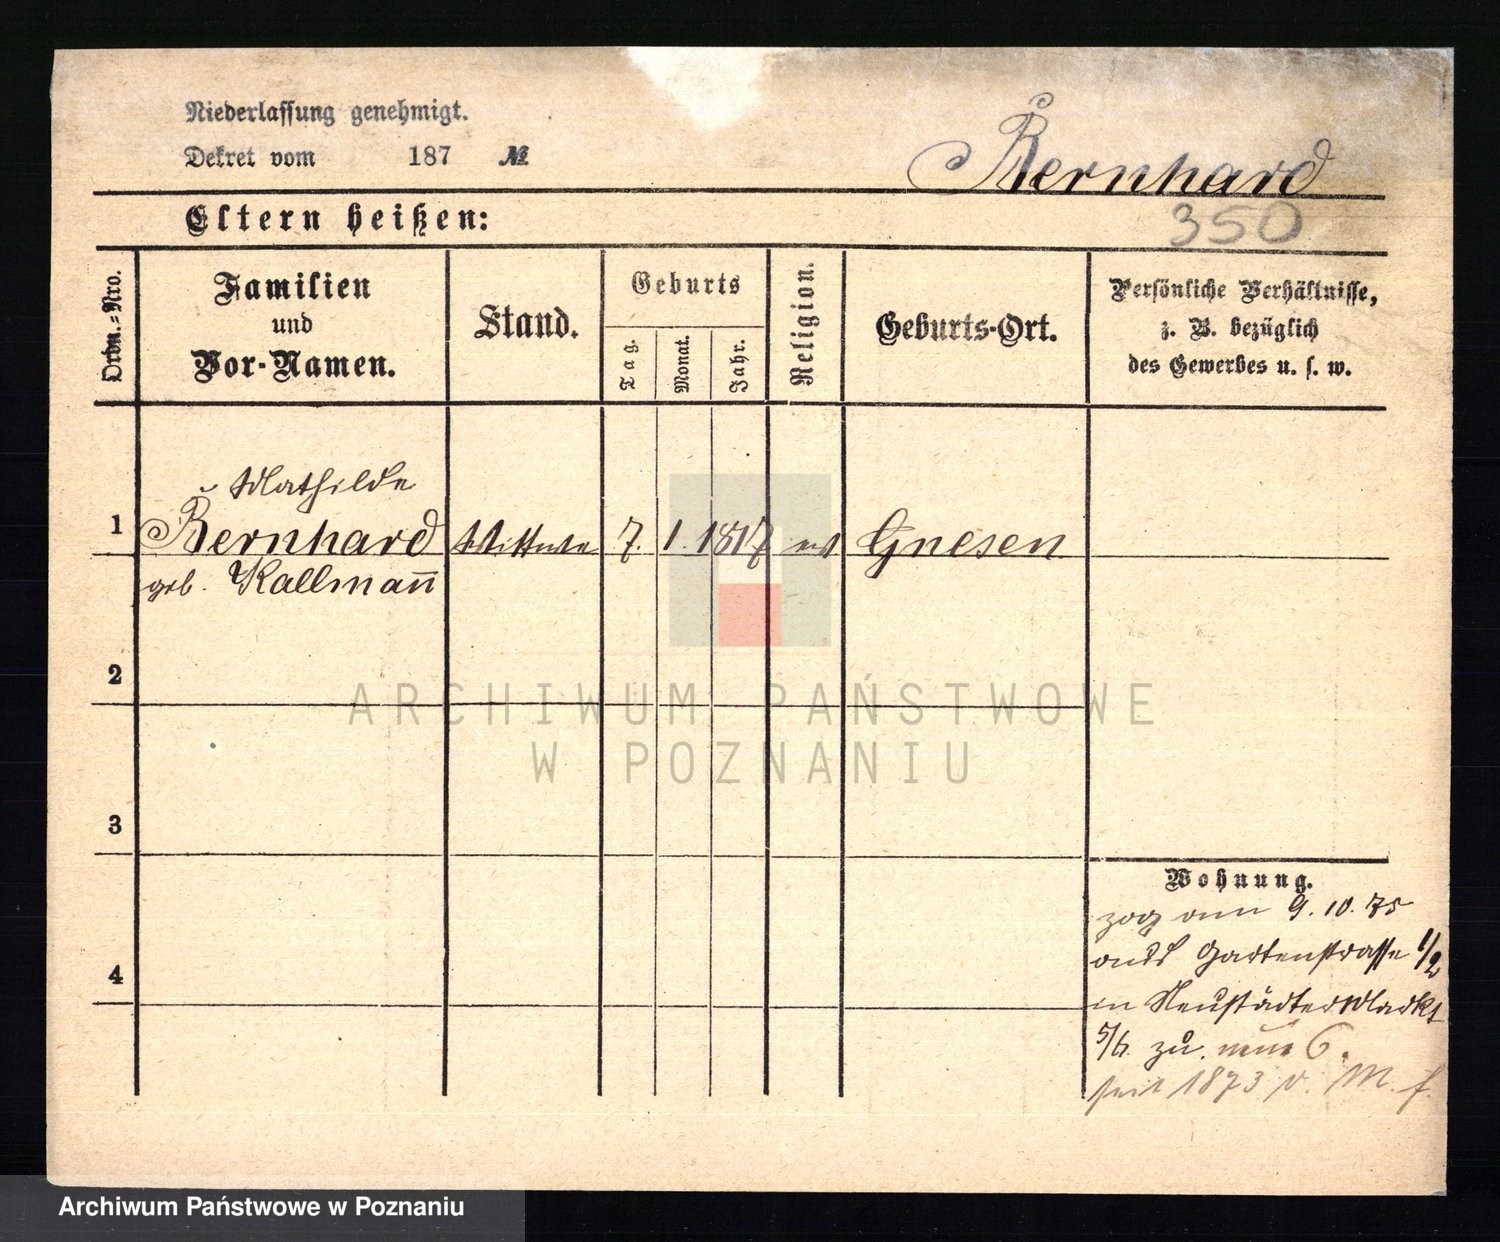 Niederlassung genehmigt.
Dekret vom 187 №
Bernhard
Eltern heißen:
350
Ordn.-Nro.
Familien
und
Vor-Namen.
Stand.
Geburts
Tag.
Monat.
Jahr.
Religion.
Geburts-Ort.
Persönliche Verhältnisse,
z. B. bezüglich
des Gewerbes u. s. w.
Mathilde
1 Bernhard Wittwe 7. 1. 1817 Gnesen
geb. Kallmañ
2
3
4
Wohnung.
zog am 9. 10. 75
aus Gartenstrasse 1/2
in Neustädter Markt
5/6. zu. neue 6.
seit 1873 v. M. f.
ARCHIWUM PAŃSTWOWE
W POZNANIU
Archiwum Państwowe w Poznaniu